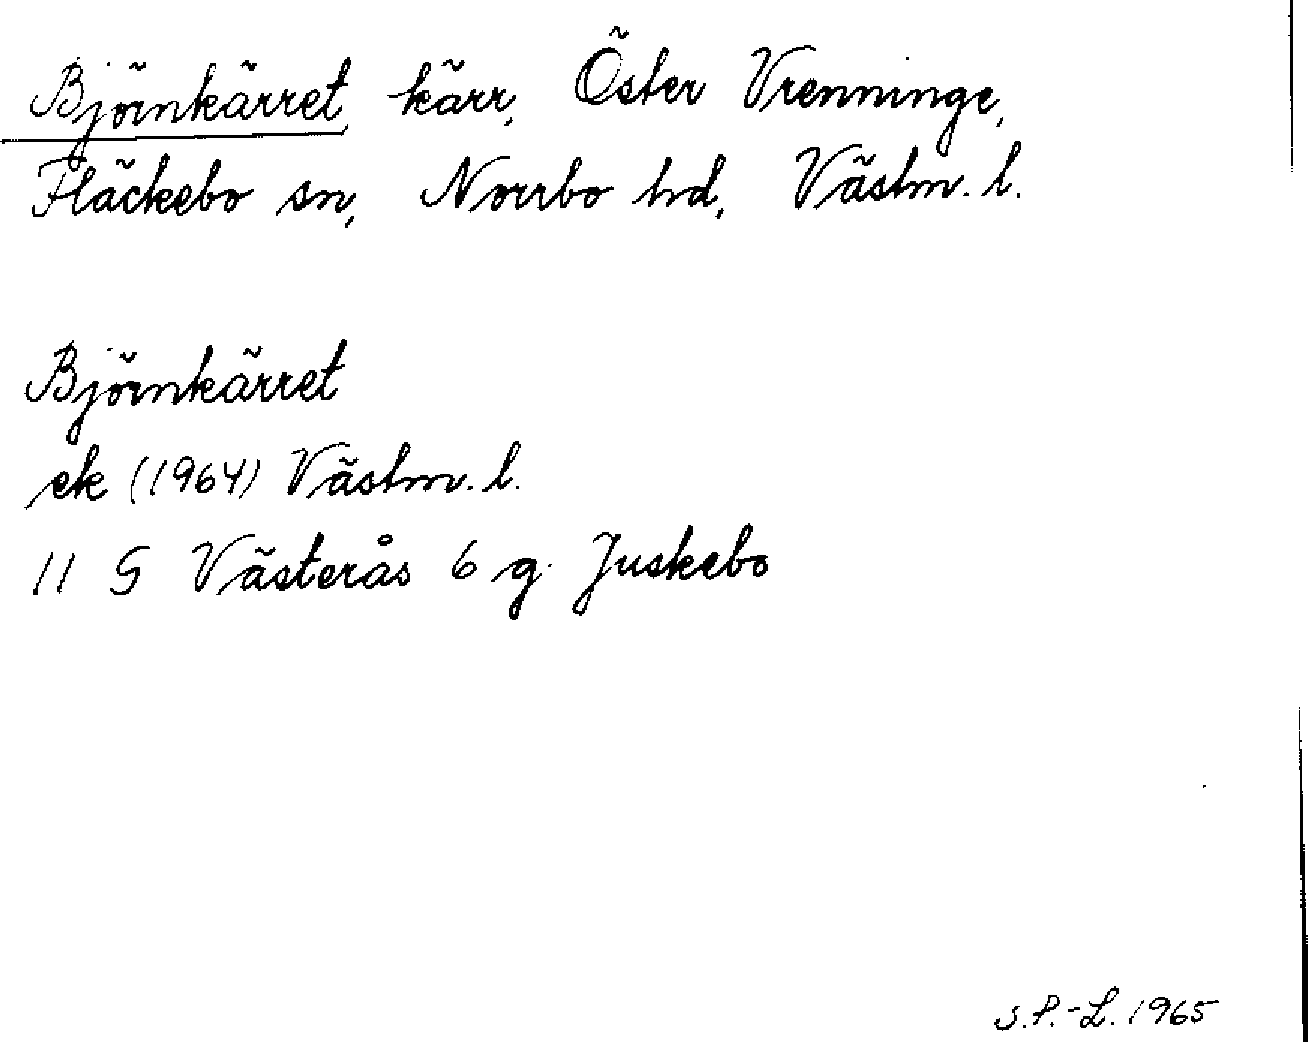 Björnkärret, kärr, Öster Vrenninge,
Fläckebo sn, Norrbo hd, Västm. l.
Björnkärret
ek (1964) Västm. l.
11 G Västerås 6 g. Juskebo
S.P.-L. 1965